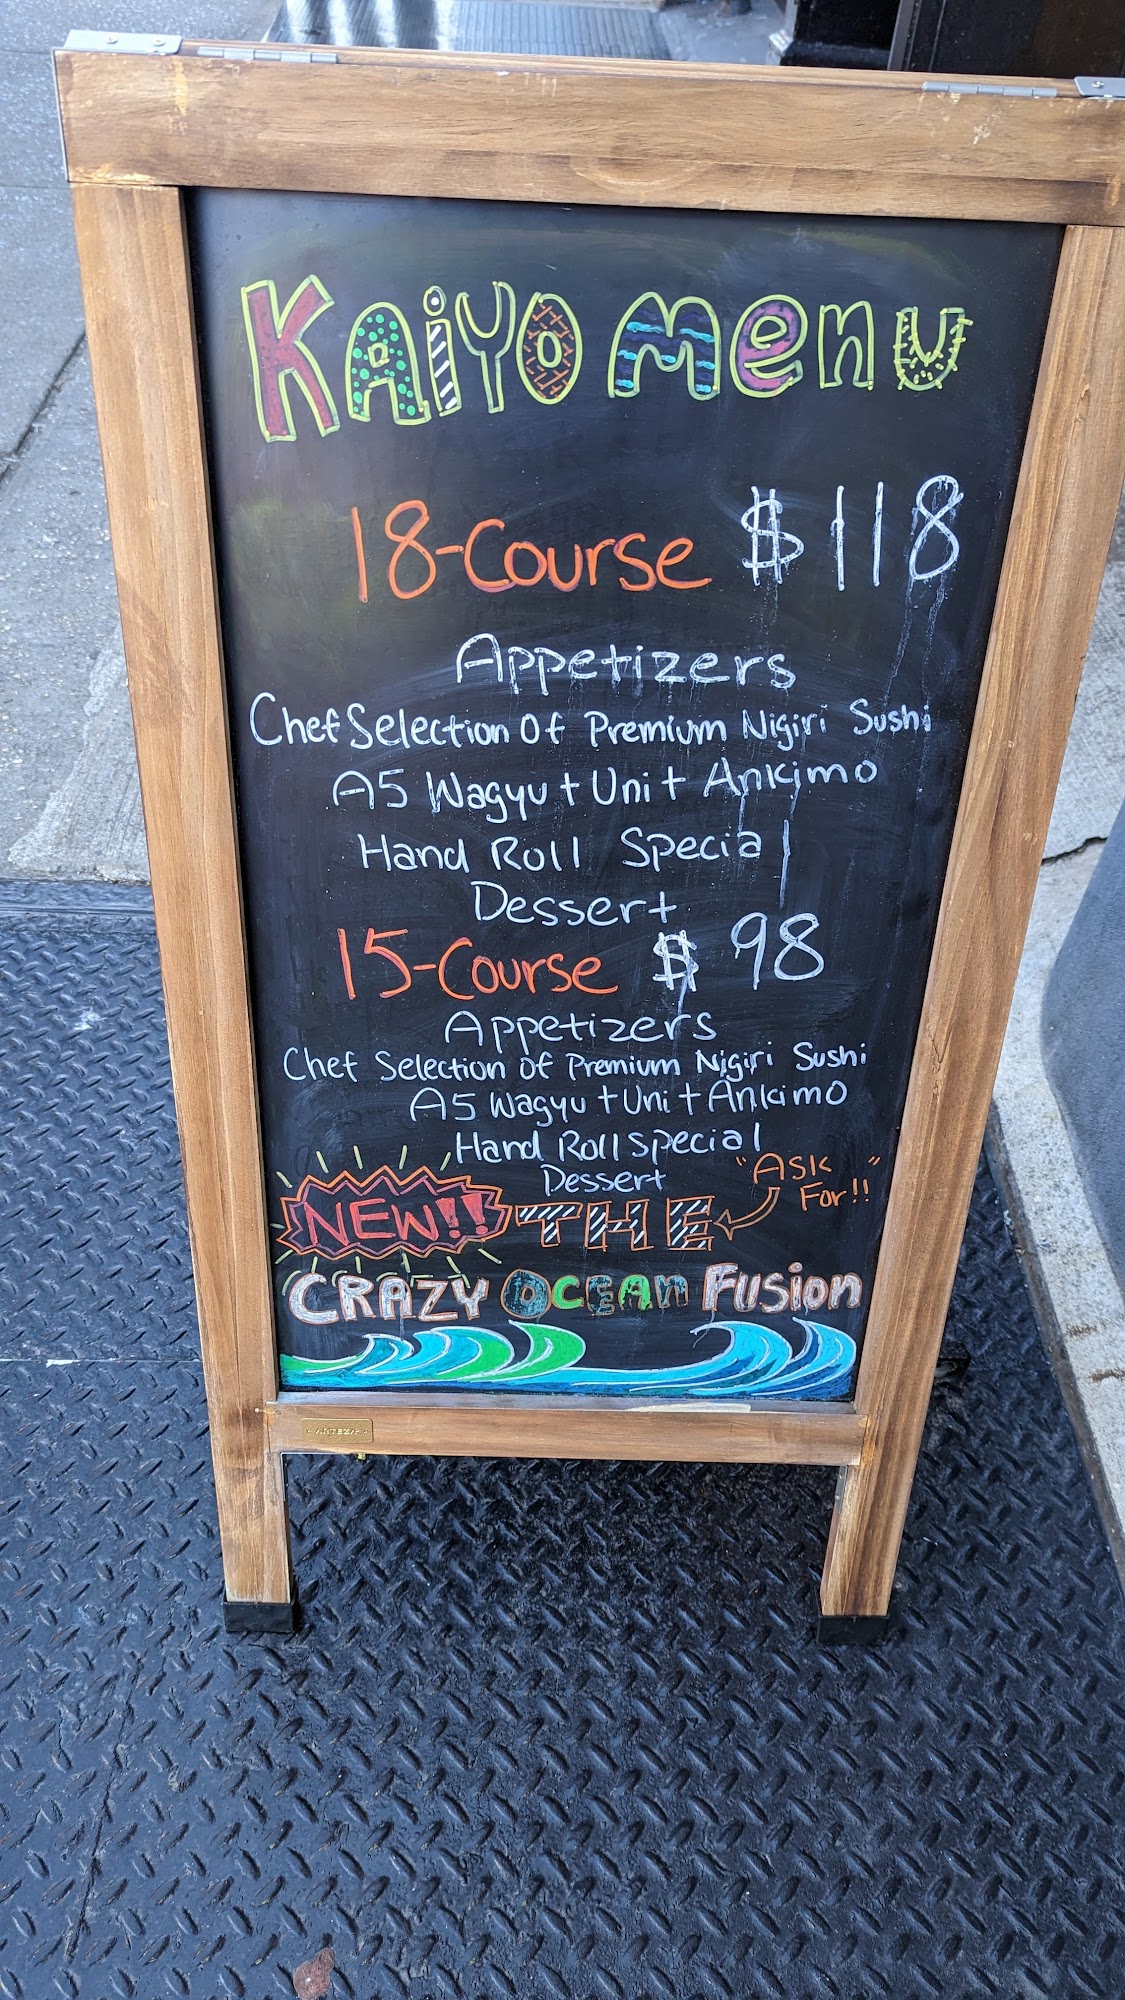 Kaiyo menu
18-Course $118
Appetizers
Chef Selection Of Premium Nigiri Sushi
A5 Wagyu + Uni + Ankimo
Hand Roll Special
Dessert
15-Course $98
Appetizers
Chef Selection Of Premium Nigiri Sushi
A5 Wagyu + Uni + Ankimo
Hand Roll Special
Dessert
"Ask For!!"
NEW!! THE
CRAZY OCEAN Fusion
ARTEZA